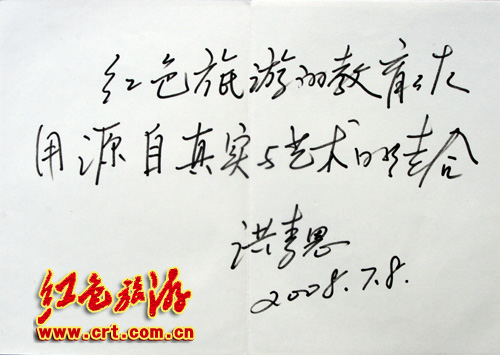 红色旅游的教育作
用源自真实与艺术的结合
洪青恩
2008.7.8.
红色旅游
www.crt.com.cn